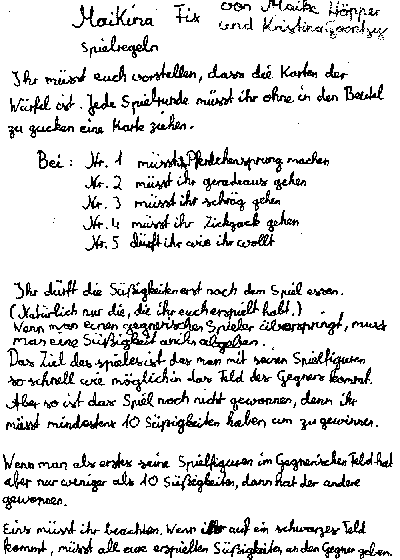 MaiKina Fix von Maike Höpper
und Kristina
Spielregeln
Ihr müsst euch vorstellen, dass die Karten der
Würfel ist. Jede Spielrunde müsst ihr ohne in den Beutel
zu gucken eine Karte ziehen.
Bei: Nr. 1 müsst ihr Pferdchensprung machen
Nr. 2 müsst ihr geradeaus gehen
Nr. 3 müsst ihr schräg gehen
Nr. 4 müsst ihr Zickzack gehen
Nr. 5 dürft ihr wie ihr wollt
Ihr dürft die Süßigkeiten erst nach dem Spiel essen.
(Natürlich nur die, die ihr euch erspielt habt.)
Wenn man einen gegnerischen Spieler überspringt, muss
man eine Süßigkeit an ihn abgeben.
Das Ziel des spieles ist das man mit seinen Spielfiguren
so schnell wie möglich in das Feld des Gegners kommt.
Aber so ist das Spiel noch nicht gewonnen, denn ihr
müsst mindestens 10 Süßigkeiten haben um zu gewinnen.
Wenn man als erstes seine Spielfiguren im Gegnerischen Feld hat
aber nur weniger als 10 Süßigkeiten, dann hat der andere
gewonnen.
Eins müsst ihr beachten. Wenn ihr auf ein schwarzes Feld
kommt, müsst all eure erspielten Süßigkeiten an den Gegner geben.